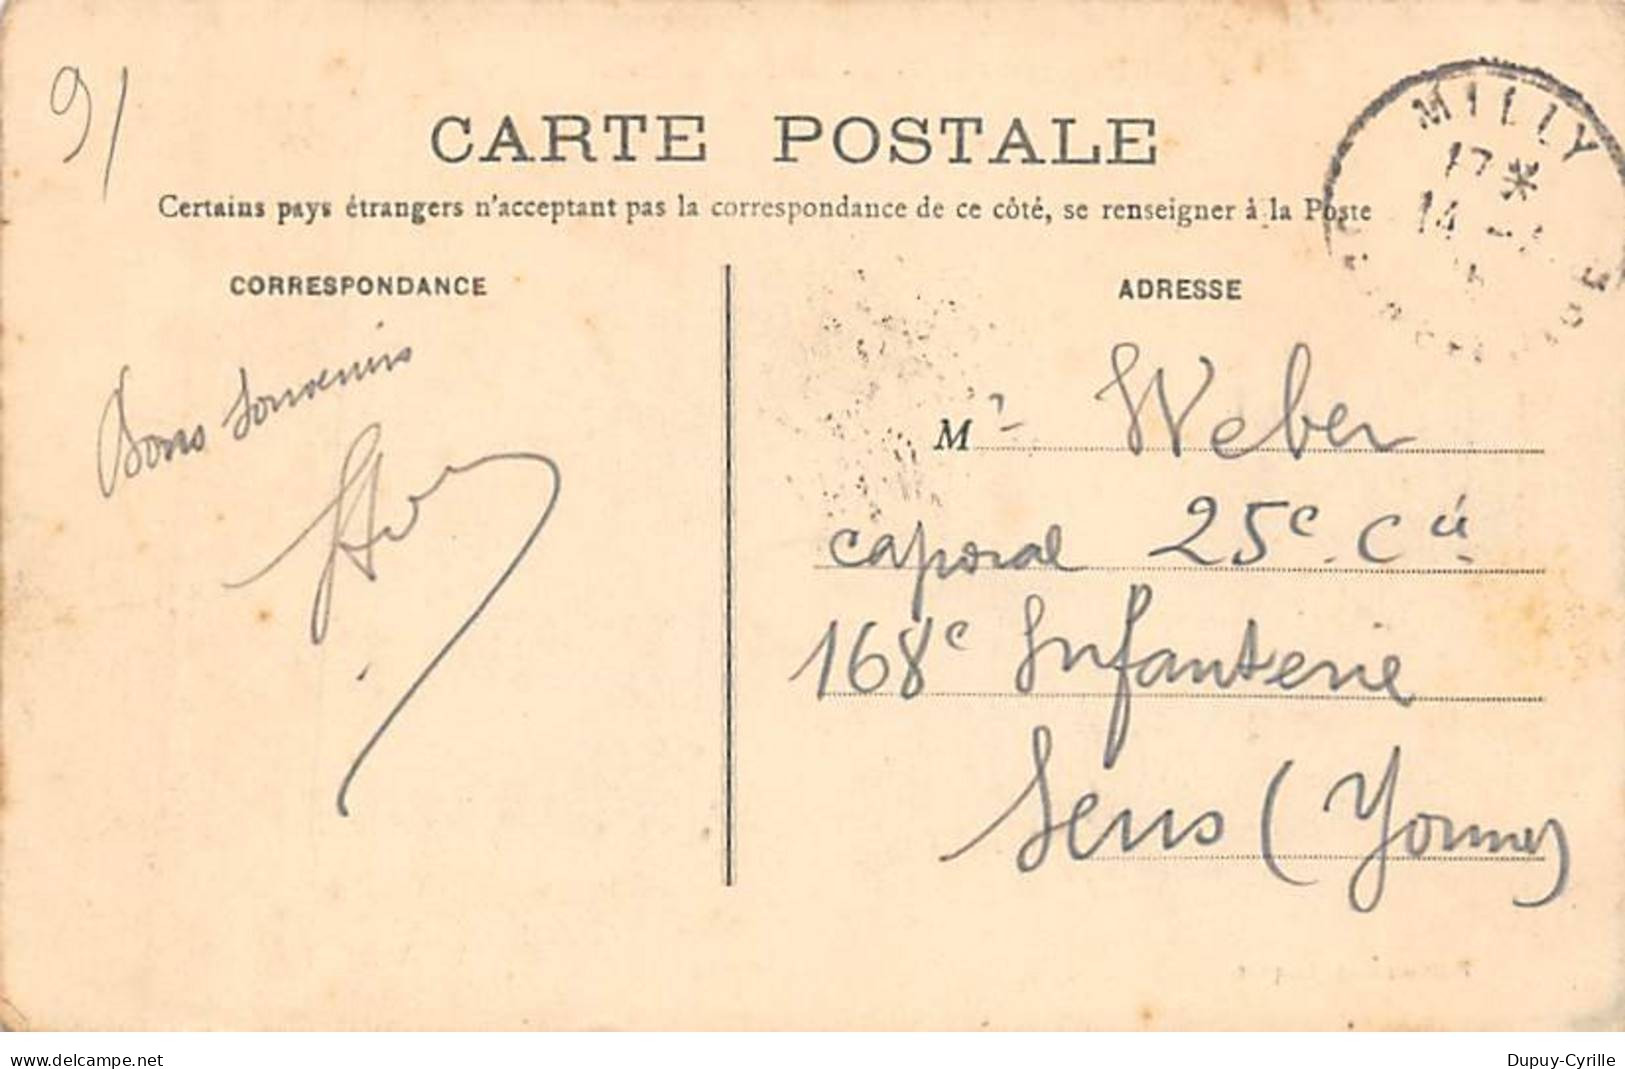 91
CARTE POSTALE
Certains pays étrangers n'acceptant pas la correspondance de ce côté, se renseigner à la Poste
MILLY
17 *
14
CORRESPONDANCE
ADRESSE
Bons Souvenirs
Mr Weber
caporal 25e Cie
168e Infanterie
Sens (Yonne)
www.delcampe.net
Dupuy-Cyrille